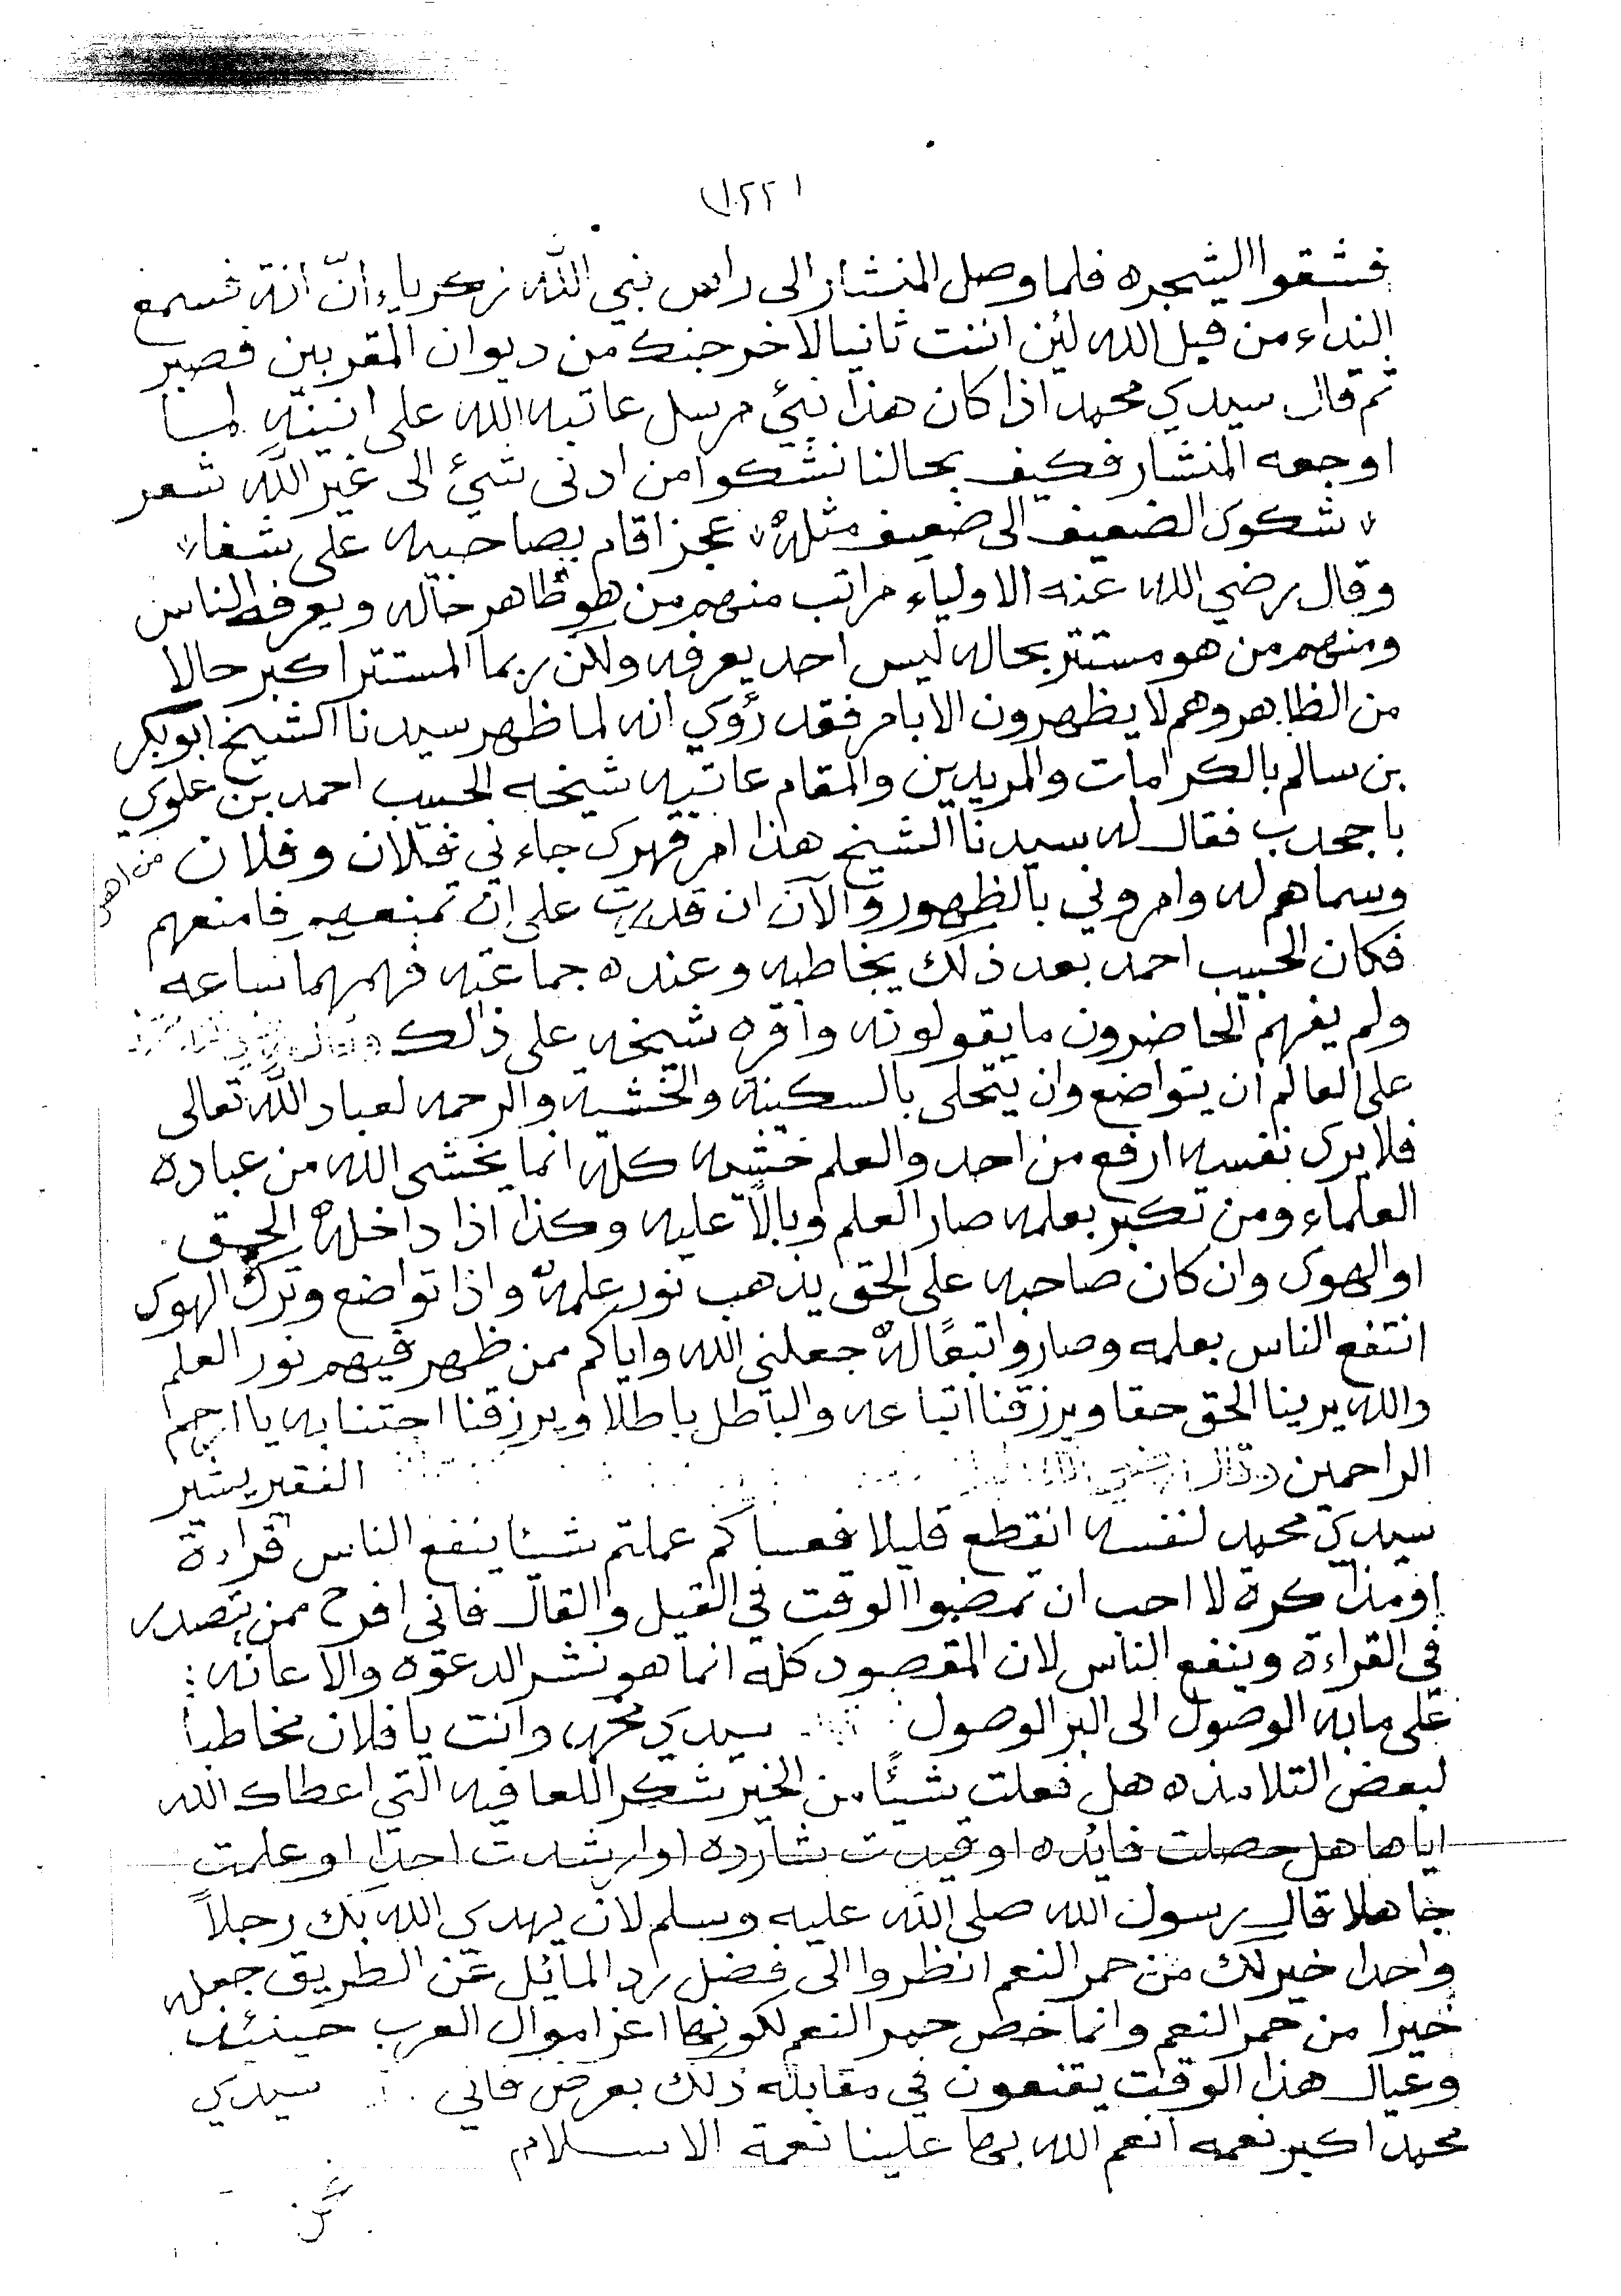 فشقوا الشجره فلما وصل المنشار الى راس نبي الله زكرياء أنّ انة فسمع
النداء من قبل الله لئن اننت ثانيا لاخرجنك من ديوان المقربين فصبر
ثم قال سيدي محمد اذا كان هذا نبيّ مرسل عاتبه الله على انينه لما
اوجعه المنشار فكيف بحالنا نشكوا من ادنى شيئ الى غير الله شعر
شكوى الضعيف الى ضعيف مثله عجز اقام بصاحبه على شفا
وقال رضي الله عنه الاولياء مراتب منهم من هو ظاهر حاله ويعرفه الناس
ومنهم من هو مستتر بحاله ليس احد يعرفه ولكن ربما المستتر اكبر حالا
من الظاهر وهم لا يظهرون الا بامر فقد رؤي انه لما ظهر سيدنا الشيخ ابوبكر
بن سالم بالكرامات والمريدين والمقام عاتبه شيخه الحبيب احمد بن علوي
با جحدب فقال له سيدنا الشيخ هذا امر قهري جاءني فلان وفلان
وسماهم له وامروني بالظهور والآن ان قدرت على ان تمنعهم فامنعهم
فكان الحبيب احمد بعد ذلك يخاطبه وعنده جماعته فهمهما ساعه
ولم يفهم الحاضرون ما يقولونه واقره شيخه على ذالك
على العالم ان يتواضع وان يتحلى بالسكينة والخشية والرحمه لعباد الله تعالى
فلا يرى نفسه ارفع من احد والعلم خشيه كله انما يخشى الله من عباده
العلماء ومن تكبر بعلمه صار العلم وبالاً عليه وكذا اذا داخله الحمق
او الهوى وان كان صاحبه على الحق يذهب نور علمه واذا تواضع وترك الهوى
انتفع الناس بعلمه وصاروا تبعًا له جعلني الله واياكم ممن ظهر فيهم نور العلم
والله يرينا الحق حقا ويرزقنا اتباعه والباطل باطلا ويرزقنا اجتنابه يا ارحم
الراحمين وقال رضي الله الفقير يشير
سيدي محمد لنفسه انقطع قليلا فعساكم عملتم شيئا ينفع الناس قراءة
او مذاكرة لا احب ان تمضوا الوقت في القيل والقال فاني افرح ممن يتصدر
في القراءة وينفع الناس لان المقصود كله انما هو نشر الدعوه والاعانه
على ما به الوصول الى البر الوصول سيدي محمد وانت يا فلان مخاطبا
لبعض التلامذه هل فعلت شيئًا من الخير شكرا للعافيه التي اعطاك الله
اياها هل حصلت فائده او قيدت شارده او ارشدت احدا او علمت
جاهلا قال رسول الله صلى الله عليه وسلم لان يهدي الله بك رجلاً
واحدا خير لك من حمر النعم انظروا الى فضل رد المائل عن الطريق جعله
خيرا من حمر النعم وانما خص حمر النعم لكونها اعز اموال العرب حينئذ
وعيال هذا الوقت يقنعون في مقابلة ذلك بعرض فاني سيدي
محمد اكبر نعمه انعم الله بها علينا نعمة الاسلام